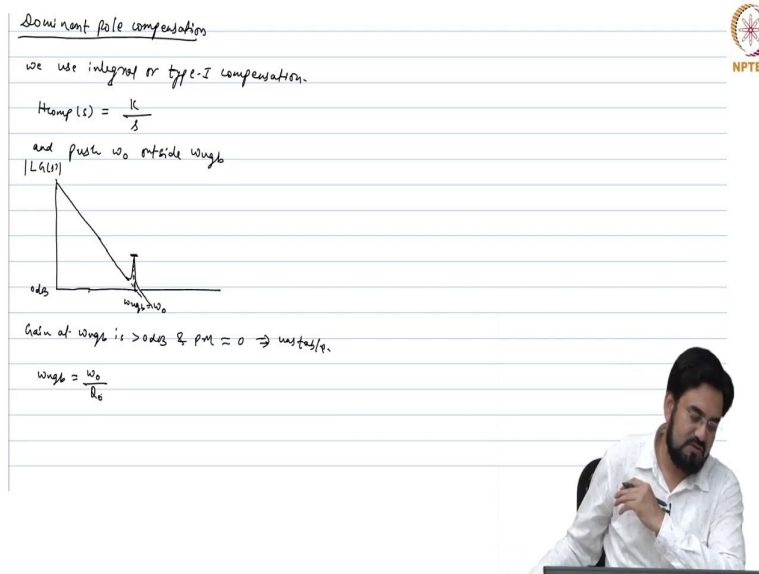 Dominant pole compensation
we use integral or type-I compensation.
Hcomp(s) = K/s
and push ω₀ outside ωugb
|LG(s)|
0dB
ωugb=ω₀
Gain at ωugb is >0dB & PM ≈ 0 ⇒ unstable.
ωugb = ω₀/Q₀
NPTE